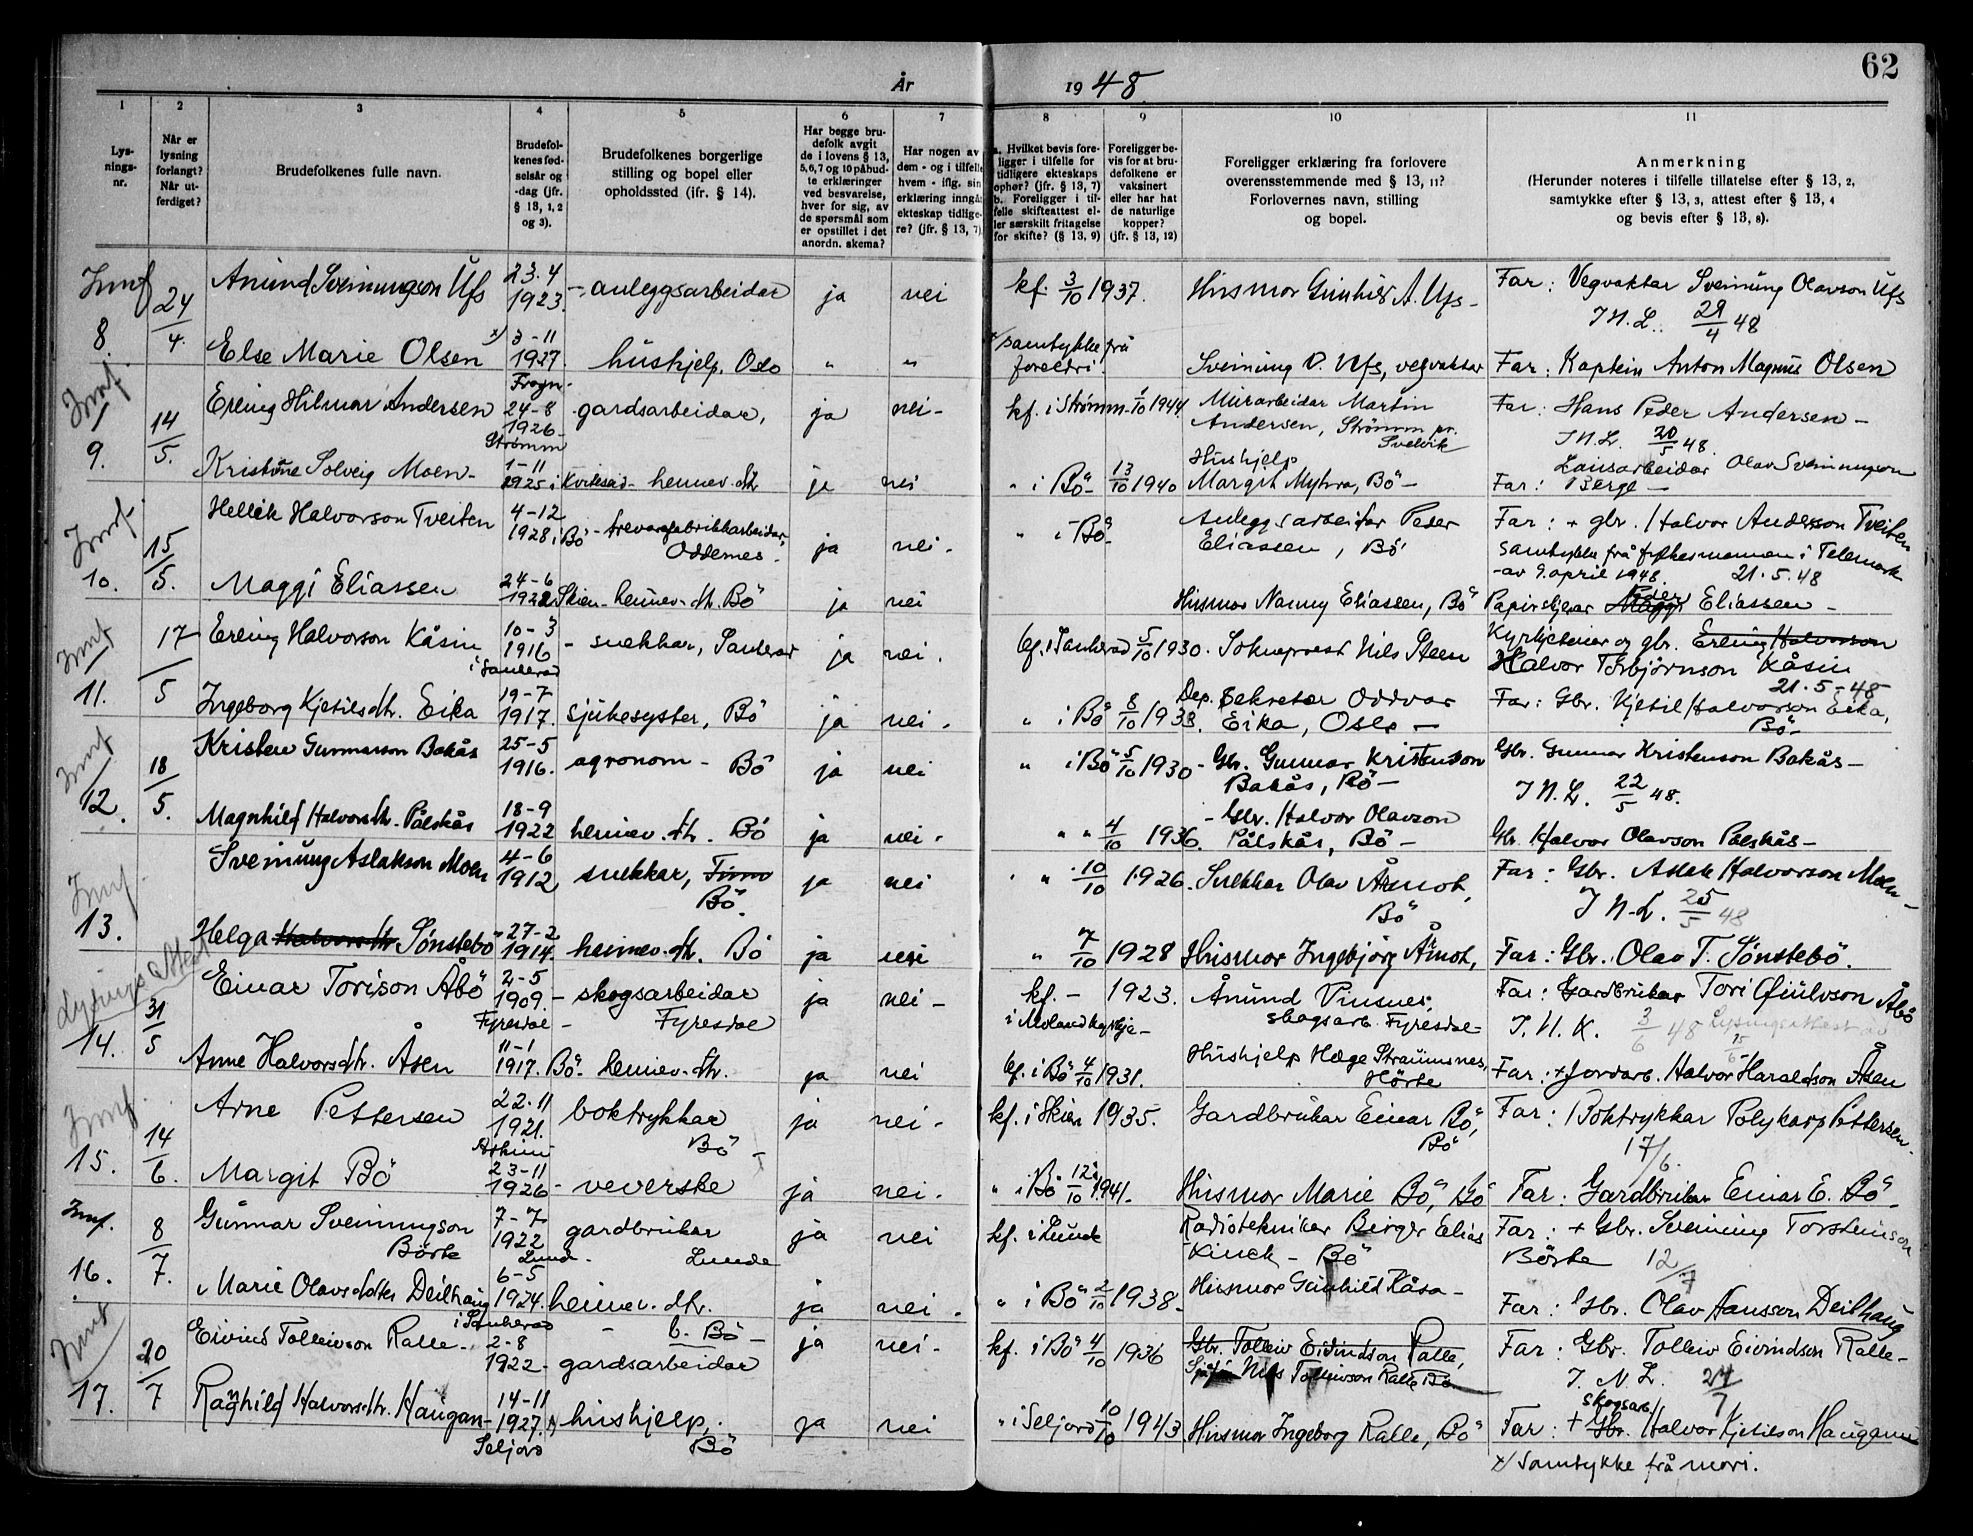 62
År 1948.
1 2 3 4 5 6 7 8 9 10 11
Lys-
nings-
nr.
Når er
lysning
forlangt?
Når ut-
ferdiget?
Brudefolkenes fulle navn.
Brudefol-
kenes fød-
selsår og
-dag (jfr.
§ 13, 1, 2
og 3).
Brudefolkenes borgerlige
stilling og bopel eller
opholdssted (ifr. § 14).
Har begge bru-
defolk avgit
de i lovens § 13,
5, 6, 7 og 10 påbud-
te erklæringer
ved besvarelse,
hver for sig, av
de spørsmål som
er opstillet i det
anordn. skema?
Har nogen av
dem - og i tilfelle
hvem - iflg. sin
erklæring inngåt
ekteskap tidlige-
re? (jfr. § 13, 7)
a. Hvilket bevis fore-
ligger i tilfelle for
tidligere ekteskaps
ophør? (jfr. § 13, 7)
b. Foreligger i til-
felle skifteattest el-
ler særskilt fritagelse
for skifte? (§ 13, 9)
Foreligger be-
vis for at bru-
defolkene er
vaksinert
eller har hat
de naturlige
kopper?
(jfr. § 13, 12)
Foreligger erklæring fra forlovere
overensstemmende med § 13, 11?
Forlovernes navn, stilling
og bopel.
Anmerkning
(Herunder noteres i tilfelle tillatelse efter § 13, 2,
samtykke efter § 13, 3, attest efter § 13, 4
og bevis efter § 13, 8).
8. 24/4. Anund Sveinungson Ufs 23.4 1923. - anleggsarbeidar ja nei kf. 3/10 1937. Husmor Gunhild A. Ufs - Far: Vegvaktar Sveinung Olavson Ufs
I N. L. 29/4 48
Else Marie Olsen x) 3-11 1927. Frogn. hushjelp. Oslo " " x/ samtykke frå foreldri. Sveinung O. Ufs, vegvaktar Far: Kaptein Anton Magnus Olsen
9. 14/5. Erling Hilmar Andersen 24-8 1926 - Strømm gardsarbeidar, ja nei - kf. i Strømm - 1/10 1944. Murarbeidar Martin Andersen, Strømm pr. Svelvik Far: Hans Peder Andersen -
I N. L. 20/5 48.
Kristine Solveig Moen - 1-11 1925 i Kviteseid - heimev. dtr ja nei " i Bö - 13/10 1940 Hushjelp Margit Myhra, Bö - Far: Lausarbeidar Olav Sveinungson Berge -
10. 15/5. Hellek Halvorson Tveiten 4-12 1928 i Bö - trevarefabrikkarbeidar, Oddernes. ja nei - " i Bö - Anleggsarbeidar Peder Eliassen, Bö Far: + gbr. Halvor Anderson Tveiten
samtykke frå fylkesmannen i Telemark
- av 9. april 1948. 21.5.48
Maggi Eliassen 24-6 1928 Skien - heimev. dtr. Bö ja nei Husmor Nanny Eliassen, Bö Papirskjerar Maggi Peder Eliassen -
11. 17/5 Erling Halvorson Kåsin 10-3 1916 i Sauherad - snekkar, Sauherad ja nei. kf. i Sauherad 5/10 1930. Sokneprest Nils Steen Kyrkjetenar og gbr. Erling Halvorson
Halvor Torbjørnson Kåsin
21.5-48
Ingeborg Kjetilsdtr. Eika 19-7 1917. sjukesyster, Bö ja nei - " i Bö 8/10 1933. Dep. sekretær Oddvar Eika, Oslo - Far: Gbr. Kjetil Halvorson Eika, Bö -
12. 18/5. Kristen Gunnarson Bakås 25-5 1916. agronom - Bö ja nei " i Bö 5/10 1930 - Gbr. Gunnar Kristenson Bakås, Bö - Gbr. Gunnar Kristenson Bakås -
I N. L. 22/5 48.
Magnhild Halvorsdtr. Pålskås 18-9 1922 heimev. dtr. Bö ja nei - " " 4/10 1936. - Gbr. Halvor Olavson Pålskås, Bö - Gbr. Halvor Olavson Pålskås -
13. Sveinung Aslakson Moen 4-6 1912 snekkar, Bö. ja nei " " 10/10 1926. Snekkar Olav Åmot, Bö Far: Gbr. Aslak Halvorson Moen -
I N. L. 25/5 48
Helga Halvorsdtr Sönstebö 27-2 1914. heimev. dtr. Bö ja nei " 7/10 1928 Husmor Ingebjörg Åmot, Far: Gbr. Olav T. Sönstebö.
Lysings Attest
14. 31/5 Einar Torison Åbö 2-5 1909. Fyresdal - - skogsarbeidar Fyresdal ja nei - kf. - 1923. i Moland kyrkje - Ånund Vinsnes. skogsarb. Fyresdal - Far: Gardbrukar Tori Gjulvson Åbö
I. N. K. 3/6 48 Lysingsattest
Anne Halvorsdtr. Åsen 11-1 1917. Bö. heimev. dtr. ja nei kf. i Bö 4/10 1931. Hushjelp Hæge Straumsnes, Hörte Far: + Jordarb. Halvor Haraldson Åsen
15. 14/6. Arne Pettersen 22.11 1921. Askim boktrykkar Bö - ja nei - kf. i Skien 1935. Gardbrukar Einar Bö, Bö Far: Boktrykkar Polykarp Pettersen.
17/6.
Margit Bö 23-11 1926 - veverske ja nei - " i Bö 12/10 1941. Husmor Marie Bö, Bö Far: Gardbrukar Einar E. Bö.
16. 8/7. Gunnar Sveinungson Börte 7-7 1922 Lund. gardbrukar Lunde ja nei kf. i Lunde Radiotekniker Birger Elias Kinck - Bö Far: + Gbr. Sveinung Torsteinson Börte 12/7
Marie Olavsdotter Deilhaug 6-5 1924. i Sauherad heimev. dtr. ja nei - " i Bö 2/10 1938 - Husmor Gunhild Kåsa - Far: Gbr. Olav Hansson Deilhaug
17. 20/7 Eivind Tolleivson Ralle - 2-8 1922 - b. Bö - gardsarbeidar ja nei - kf. i Bö 4/10 1936 Gbr. Tolleiv Eivindson Ralle, Nils Tolleivson Ralle Bö Far: Gbr. Tolleiv Eivindson Ralle -
I. N. L. 24/7
Ragnhild Halvorsdtr. Haugan - 14-11 1927. x) Seljord hushjelp, Bö ja nei " i Seljord 10/10 1943 Husmor Ingeborg Ralle, Bö Far: + Gbr. skogsarb. Halvor Kjetilson Haugann
x/ Samtykke frå mori.